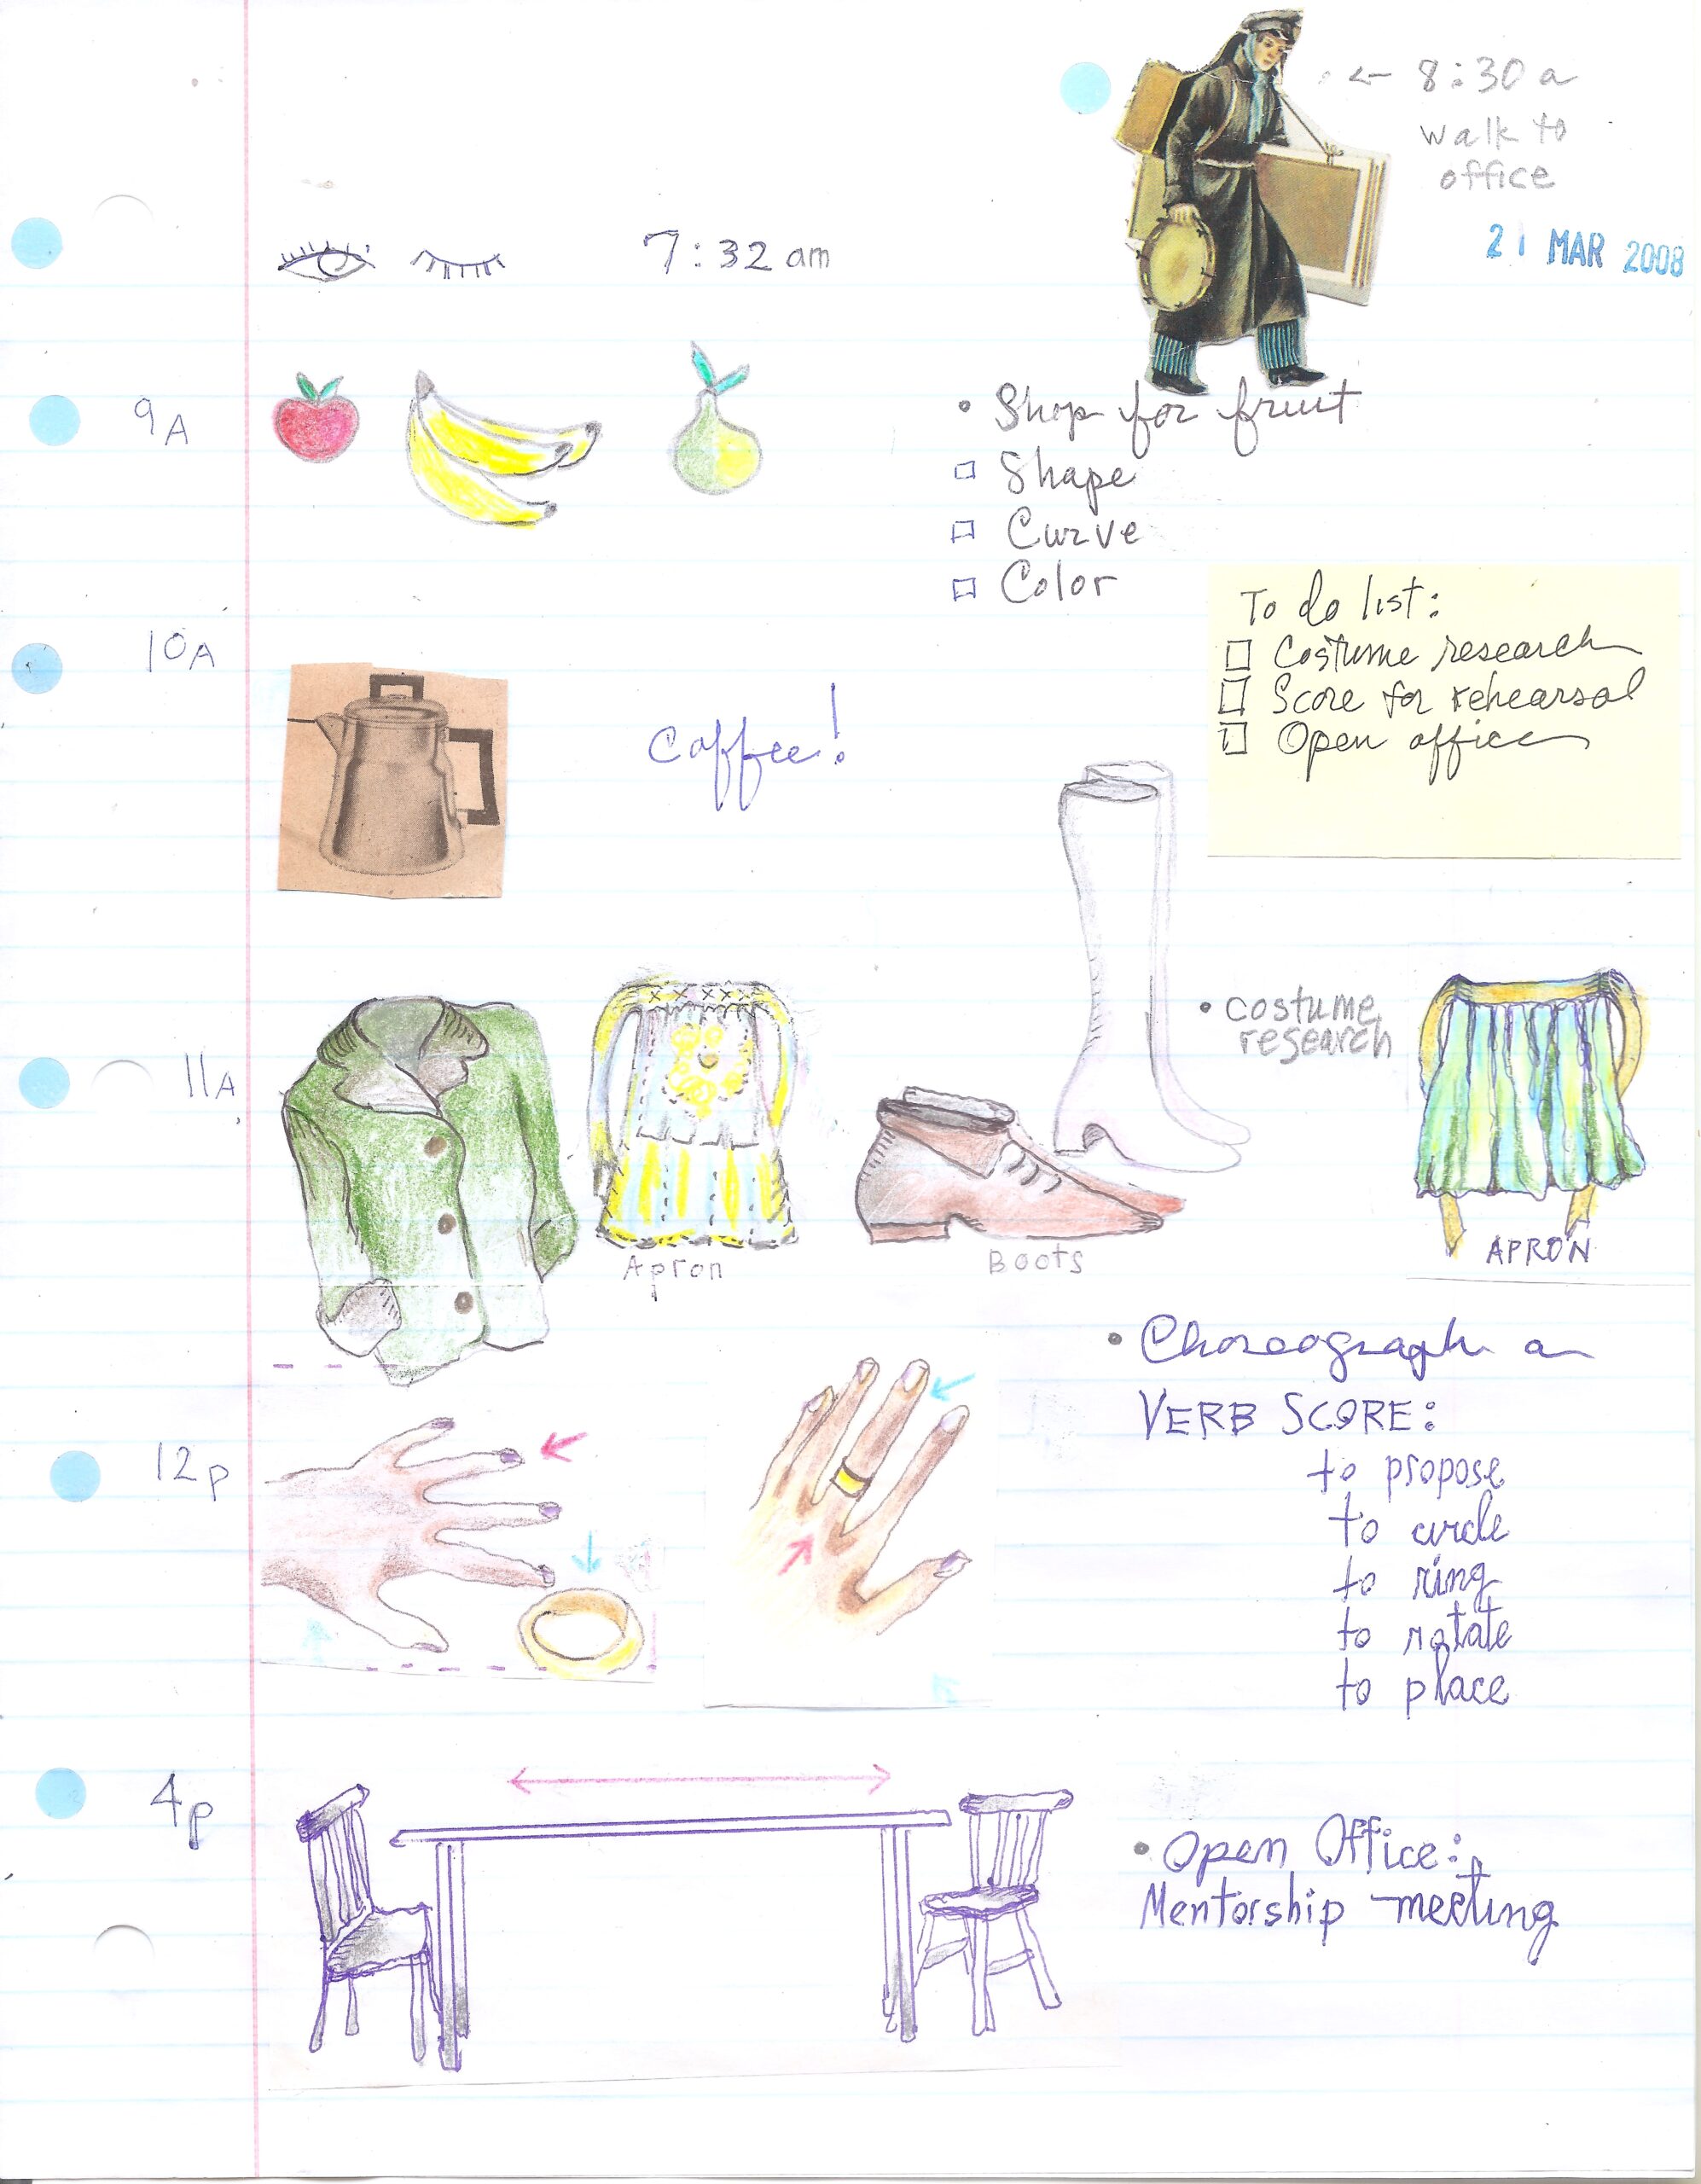 ← 8:30 a
walk to
office
21 MAR 2008
7:32 am
9A
• Shop for fruit
□ Shape
□ Curve
□ Color
To do list:
□ Costume research
□ Score for rehearsal
□ Open office
10A
Coffee!
11A
• costume
research
Apron
Boots
APRON
• Choreograph a
VERB SCORE:
12p
to propose
to circle
to ring
to rotate
to place
4p
• Open Office:
Mentorship meeting